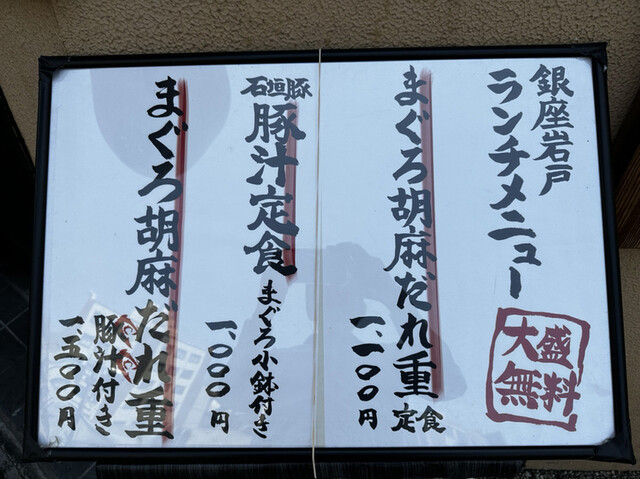 銀座岩戸
ランチメニュー
大盛
無料
まぐろ胡麻だれ重
定食
一、一〇〇円
石垣豚
豚汁定食
まぐろ小鉢付き
一、〇〇〇円
まぐろ胡麻だれ重
豚汁付き
一、五〇〇円